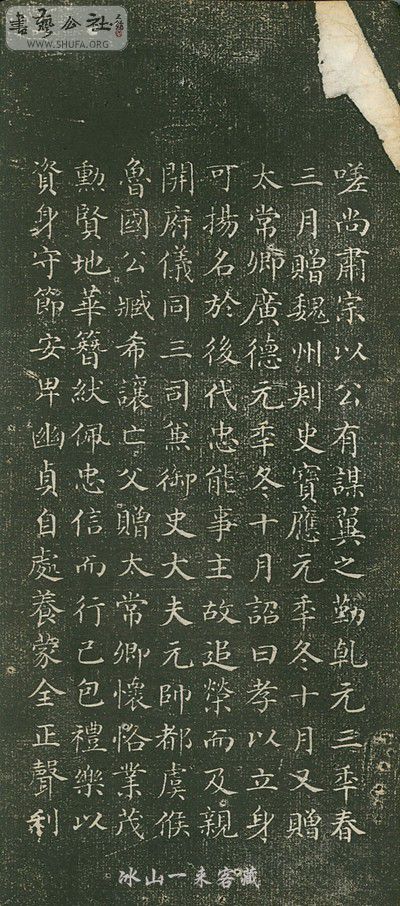 書藝公社
WWW.SHUFA.ORG
嗟尚肅宗以公有謀翼之勤乹元三秊春
三月贈魏州刾史寶應元秊冬十月又贈
太常卿廣德元秊冬十月詔曰孝以立身
可揚名於後代忠能事主故追榮而及親
開府儀同三司兼御史大夫元帥都虞候
魯國公臧希讓亡父贈太常卿懷恪業茂
勳賢地華簪紱佩忠信而行己包禮樂以
資身守節安卑幽貞自處養蒙全正聲利
冰山一来客藏